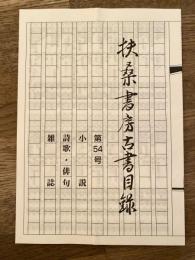 扶桑書房古書目録
第54号
小説
詩歌・俳句
雑誌